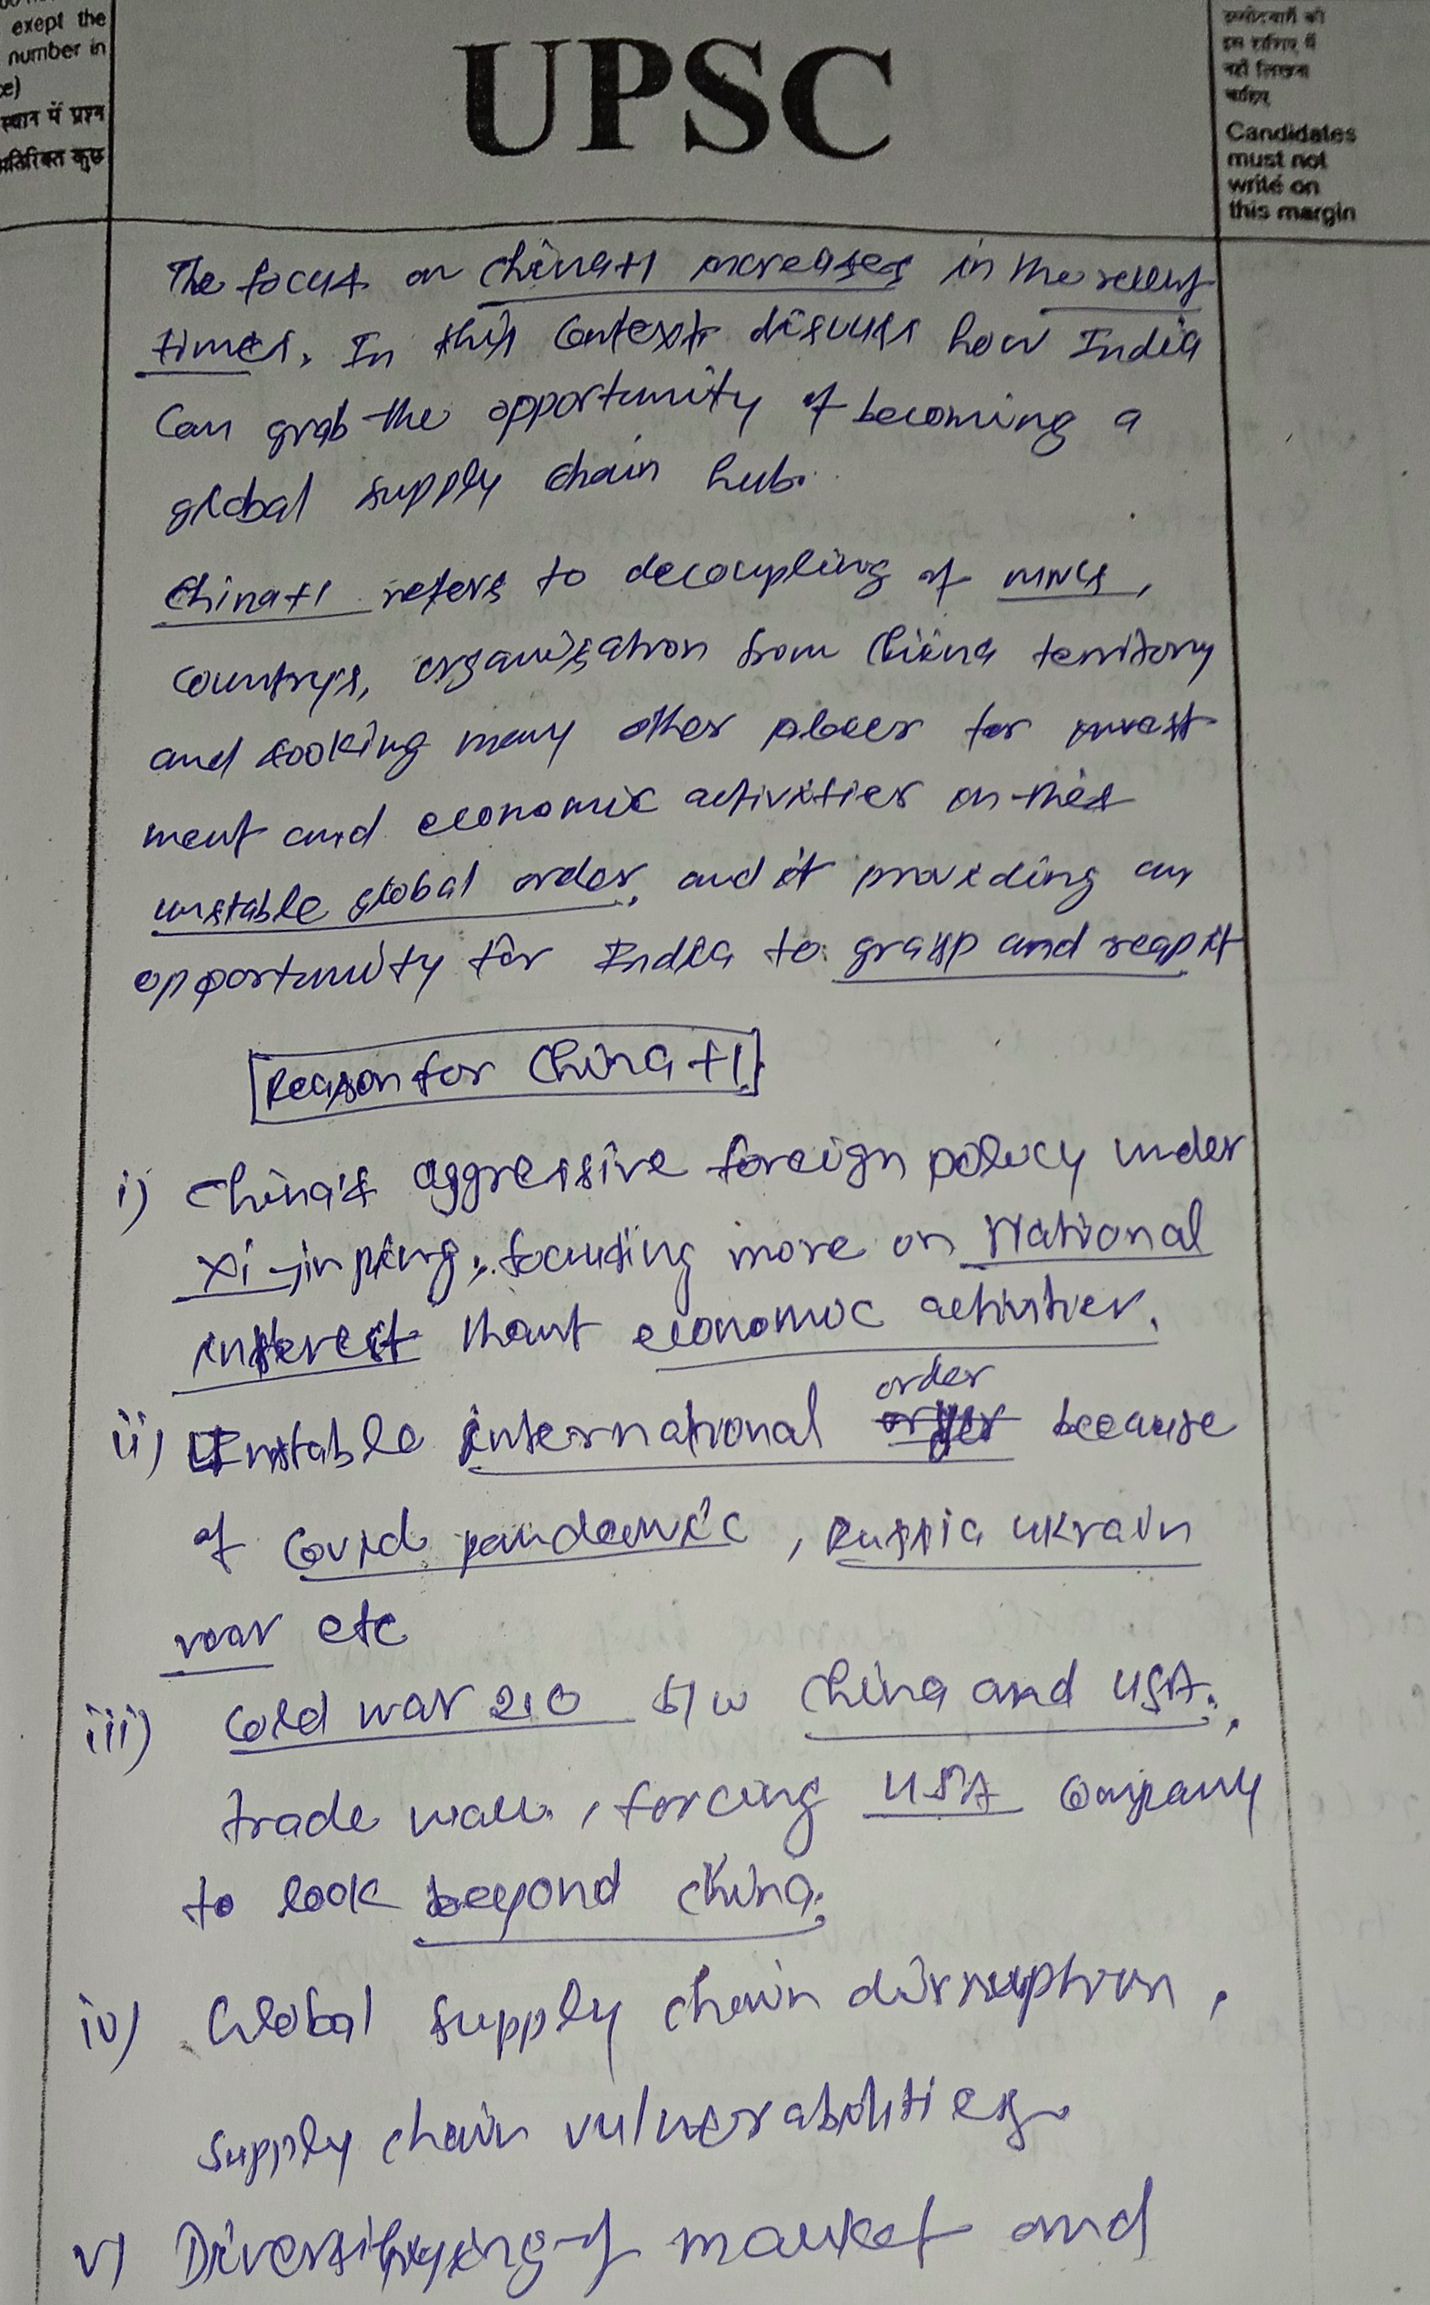 exept the
number in
e)
स्थान में प्रश्न
अतिरिक्त कुछ
UPSC
उम्मीदवारों को
इस हाशिए में
नहीं लिखना
चाहिए
Candidates
must not
write on
this margin
The focus on China+1 increases in the recent
times. In this context discuss how India
Can grab the opportunity of becoming a
global supply chain hub.
China+1 refers to decoupling of MNCs,
country's, organisation from China territory
and looking many other places for invest
ment and economic activities on this
unstable global order, and it providing an
opportunity for India to grasp and reap it
Reason for China +1
i) China's aggressive foreign policy under
Xi-jinping, focusing more on National
interest than economic activities.
ii) Unstable international order because
of Covid pandemic, Russia Ukrain
war etc
iii) Cold war 2.0 b/w China and USA.,
trade war, forcing USA Company
to look beyond China.
iv) Global supply chain disruption,
supply chain vulnerabilities
v) Diversifying of market and